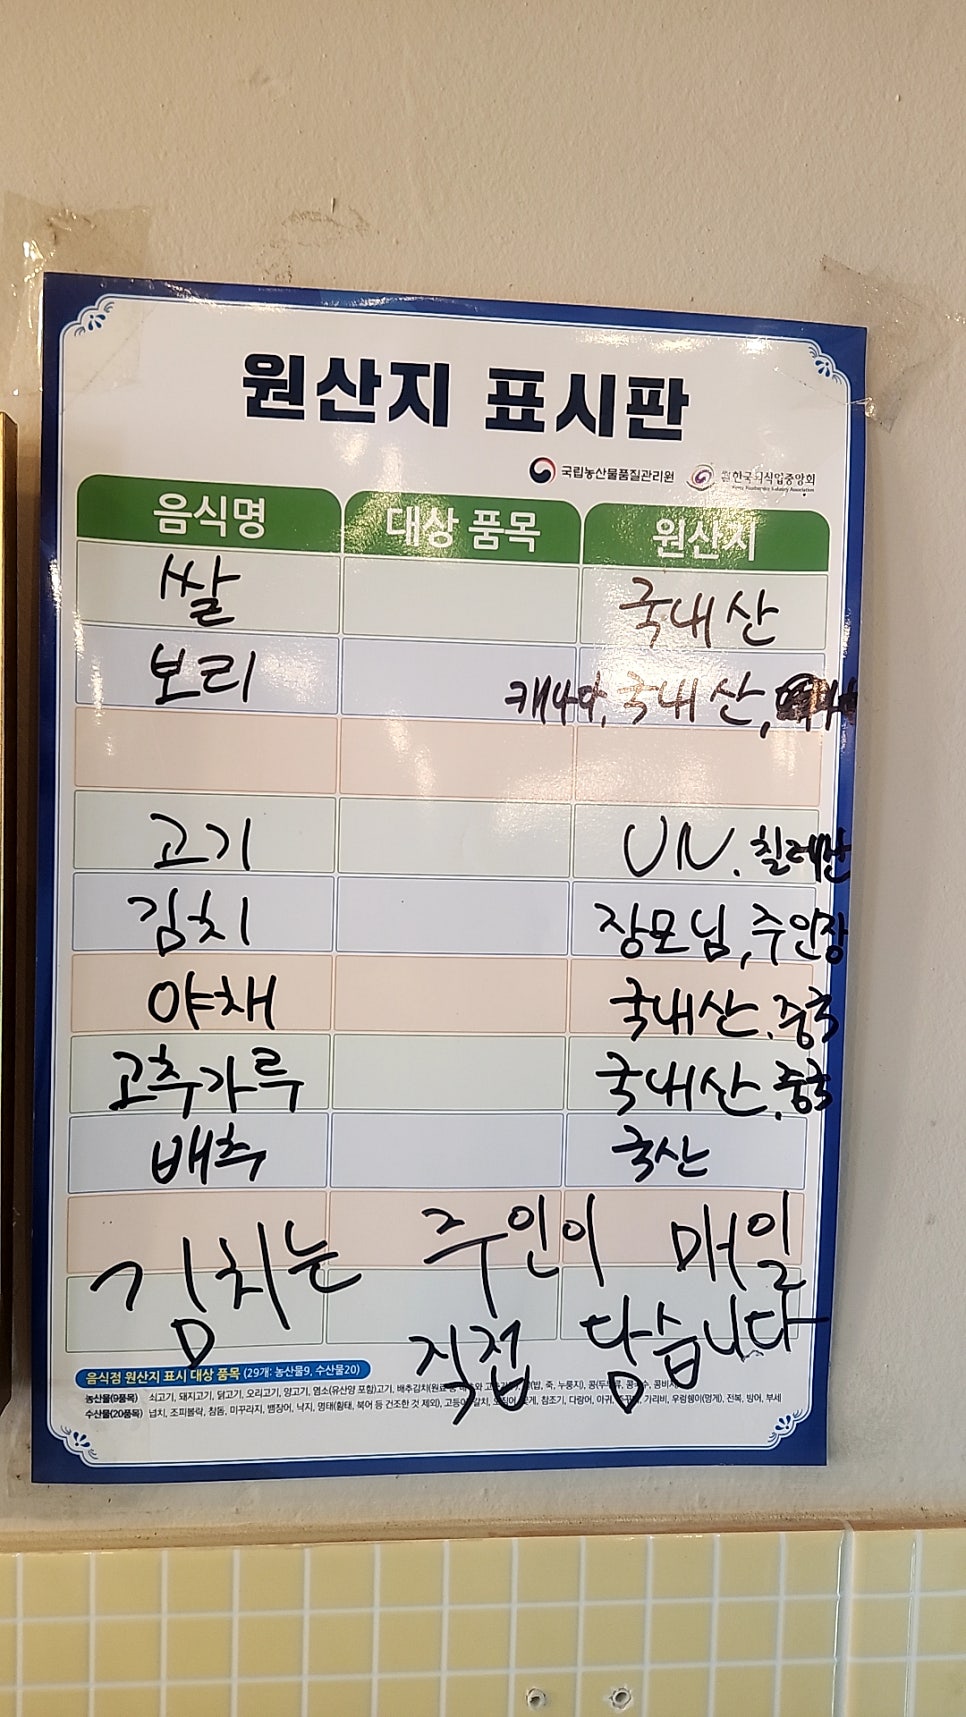 원산지 표시판
국립농산물품질관리원 한국외식업중앙회
음식명 대상 품목 원산지
쌀 국내산
보리 캐나다, 국내산,
고기 UN. 칠레산
김치 장모님, 주인장
야채 국내산, 중국
고추가루 국내산, 중국
배추 국산
김치는 주인이 매일
직접 담습니다
음식점 원산지 표시 대상 품목 (29개: 농산물9, 수산물20)
농산물(9품목) 쇠고기, 돼지고기, 닭고기, 오리고기, 양고기, 염소(유산양 포함)고기, 배추김치(원료 중 누룽지), 콩(두부류,
수산물(20품목) 넙치, 조피볼락, 참돔, 미꾸라지, 뱀장어, 낙지, 명태(황태, 북어 등 건조한 것 제외), 고등어, 갈치, 참조기, 다랑어, 아귀, 가리비, 우렁쉥이(멍게), 전복, 방어, 부세